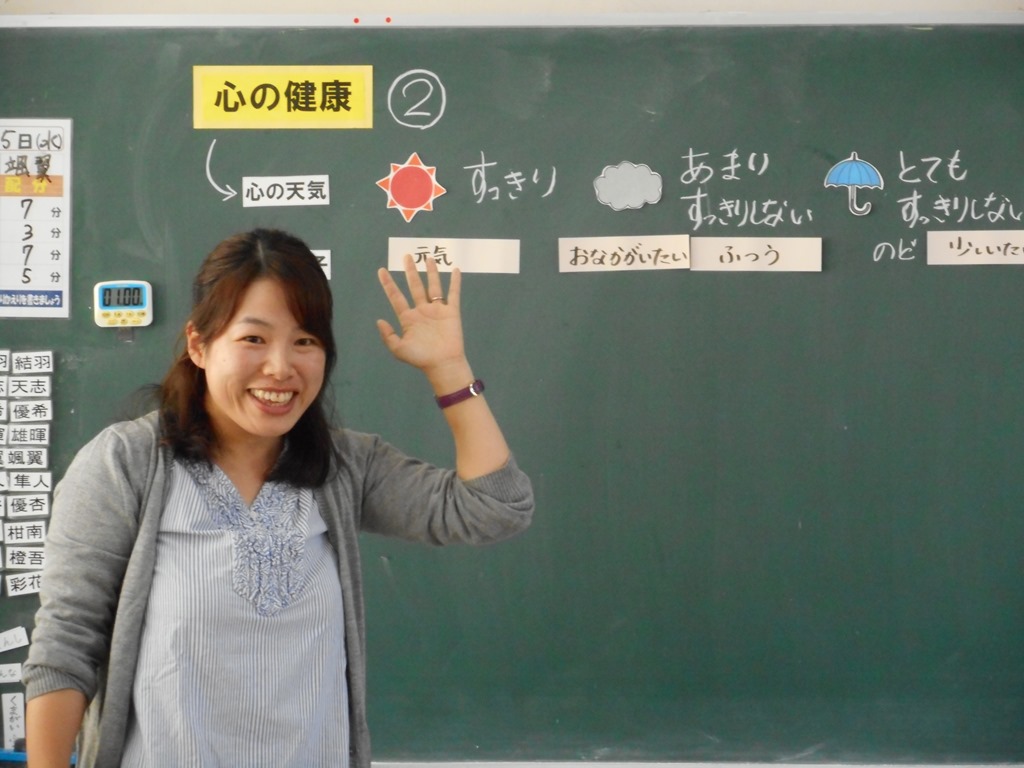 心の健康
②
5日(水)
颯翼
配分
7分
3分
7分
5分
01:00
心の天気
すっきり
あまり
すっきりしない
とても
すっきりしない
元気
おなかがいたい
ふつう
のど
少しいた
結羽
天志
優希
雄暉
颯翼
隼人
優杏
柑南
橙吾
彩花